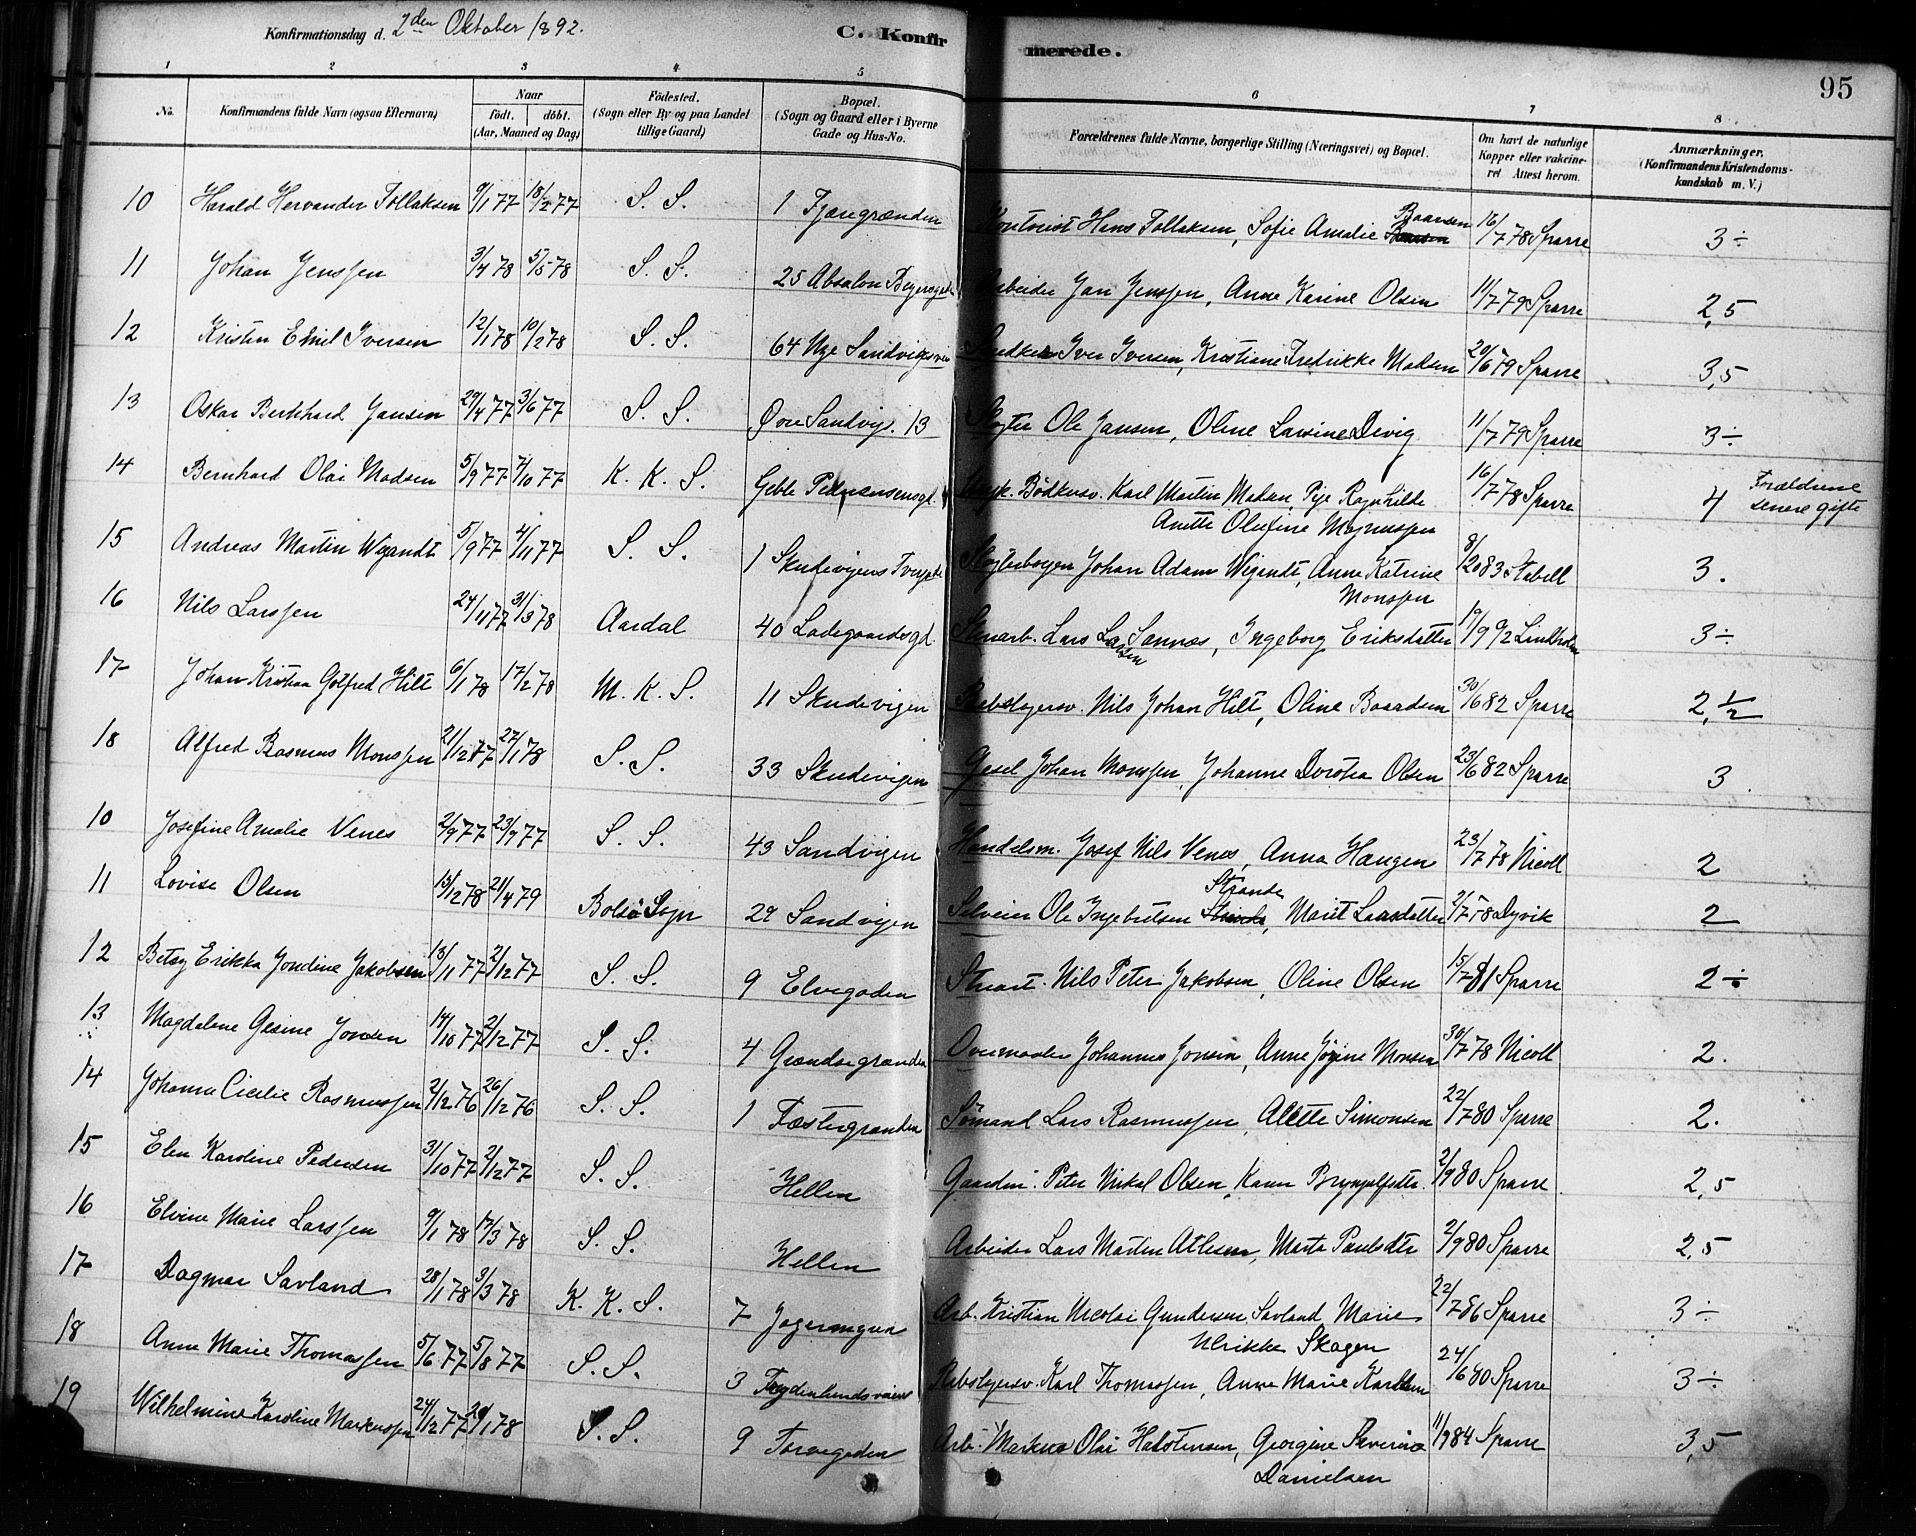 Konfirmationsdag d. 2den Oktober 1892.
C. Konfirmerede.
95
1 2 3 4 5 6 7 8
No. Konfirmandens fulde Navn (ogsaa Efternavn) Naar født. døbt. (Aar, Maaned og Dag) Fødested. (Sogn eller By og paa Landet tillige Gaard) Bopæl. (Sogn og Gaard eller i Byerne Gade og Hus-No. Forældrenes fulde Navne, borgerlige Stilling (Næringsvei) og Bopæl. Om havt de naturlige Kopper eller vakcineret Attest herom. Anmærkninger. (Konfirmandens Kristendomskundskab m. V.)
10 Harald Hervander Tollaksen 9/1 77 18/2 77 S. S. 1 Tjæregrænden Kontorist Hans Tollaksen, Sofie Amalie Baarsen 16/7 78 Sparre 3 ÷
11 Johan Jenssen 3/4 78 5/5 78 S. S. 25 Absalon Beyersgade Arbeider Jan Jenssen, Anne Karine Olsen 11/7 79 Sparre 2,5
12 Kristen Emil Iversen 12/1 78 10/2 78 S. S. 64 Nye Sandvigsvei Snedker Iver Iversen, Kristiane Fredrikke Madsen 20/6 79 Sparre 3,5
13 Oskar Bernhard Jansen 29/4 77 3/6 77 S. S. Øvre Sandvig. 13 Slagter Ole Jansen, Oline Larsine Devig 11/7 79 Sparre 3 ÷
14 Bernhard Olai Madsen 5/9 77 7/10 77 K. K. S. Geble Pedersensgd. Ungk. Bødkersv. Karl Martin Madsen, Pige Ragnhilde Anette Olufine Magnussen 16/7 78 Sparre 4 Forældrene senere gifte
15 Andreas Martin Wigandt 5/9 77 4/11 77 S. S. 1 Skudevigens Tvergade Johan Adam Wigandt, Anne Katrine Monssen 8/2 83 Stabell 3.
16 Nils Larssen 24/11 77 31/3 78 Aardal 40 Ladegaardsgd. Stenarb. Lars Larsen Sannæs, Ingeborg Eriksdatter 19/9 92 Lindholm 3 ÷
17 Johan Kristian Gotfred Hilt 6/1 78 17/2 78 M. K. S. 11 Skudevigen Rebslagersv. Nils Johan Hilt, Oline Baardsen 30/6 82 Sparre 2,1/2
18 Alfred Rasmus Monssen 21/12 77 27/1 78 S. S. 33 Skudevigen Gesel Johan Monssen, Johanne Dorotea Olsen 23/6 82 Sparre 3
10 Josefine Amalie Venes 2/9 77 23/9 77 S. S. 43 Sandvigen Handelsm. Josef Nils Venes, Anna Haugen 23/7 78 Nicoll 2
11 Lovise Olsen 13/12 78 21/4 79 Bolsø Sogn 29 Sandvigen Selveier Ole Ingebrigtsen Strande, Marit Larsdatter 2/7 78 Dyvik 2
12 Betsy Erikka Jondine Jakobsen 13/11 77 2/12 77 S. S. 9 Elvegaden Stuart. Nils Peter Jakobsen, Oline Olsen 15/7 81 Sparre 2 ÷
13 Magdalene Gesine Jonsen 14/10 77 2/12 77 S. S. 4 Grændsegrænden Johannes Jonsen, Anne Jørgine Monsen 30/7 78 Nicoll 2.
14 Johanna Cicilie Rasmussen 2/12 76 26/12 76 S. S. 1 Fæstergrænden Sømand Lars Rasmussen, Alette Simonsen 22/7 80 Sparre 2.
15 Elen Karoline Pedersen 31/10 77 2/12 77 S. S. Hellen Gaardm. Peter Mikal Olsen, Karen Brynjulfsdtr. 2/9 80 Sparre 2,5
16 Elvine Marie Larssen 9/1 78 17/3 78 S. S. Hellen Arbeider Lars Martin Atlesen, Marta Paulsdtr 2/9 80 Sparre 2,5
17 Dagmar Savland 28/1 78 3/3 78 K. K. S. 7 Arb. Kristian Nicolai Gundersen Savland, Marie Ulrikke Skagen 22/7 86 Sparre 3 ÷
18 Anne Marie Thomassen 5/6 77 5/8 77 S. S. 3 Rebslagersv. Karl Thomassen, Anne Marie Karlsen 24/6 80 Sparre 3 ÷
19 Wilhelmine Karoline Markussen 24/12 77 20/1 78 S. S. 9 Torvegaden Arb. Markus Olai Halstensen, Georgine Severine Danielsen 11/9 84 Sparre 3,5